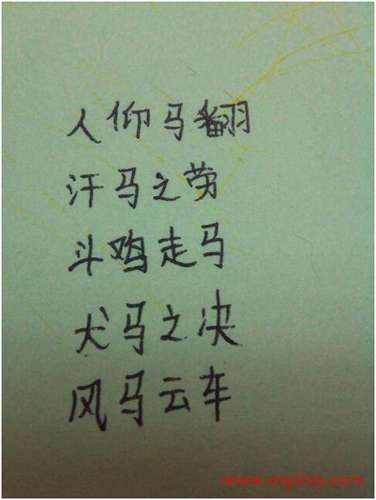 人仰马翻
汗马之劳
斗鸡走马
犬马之决
风马云车